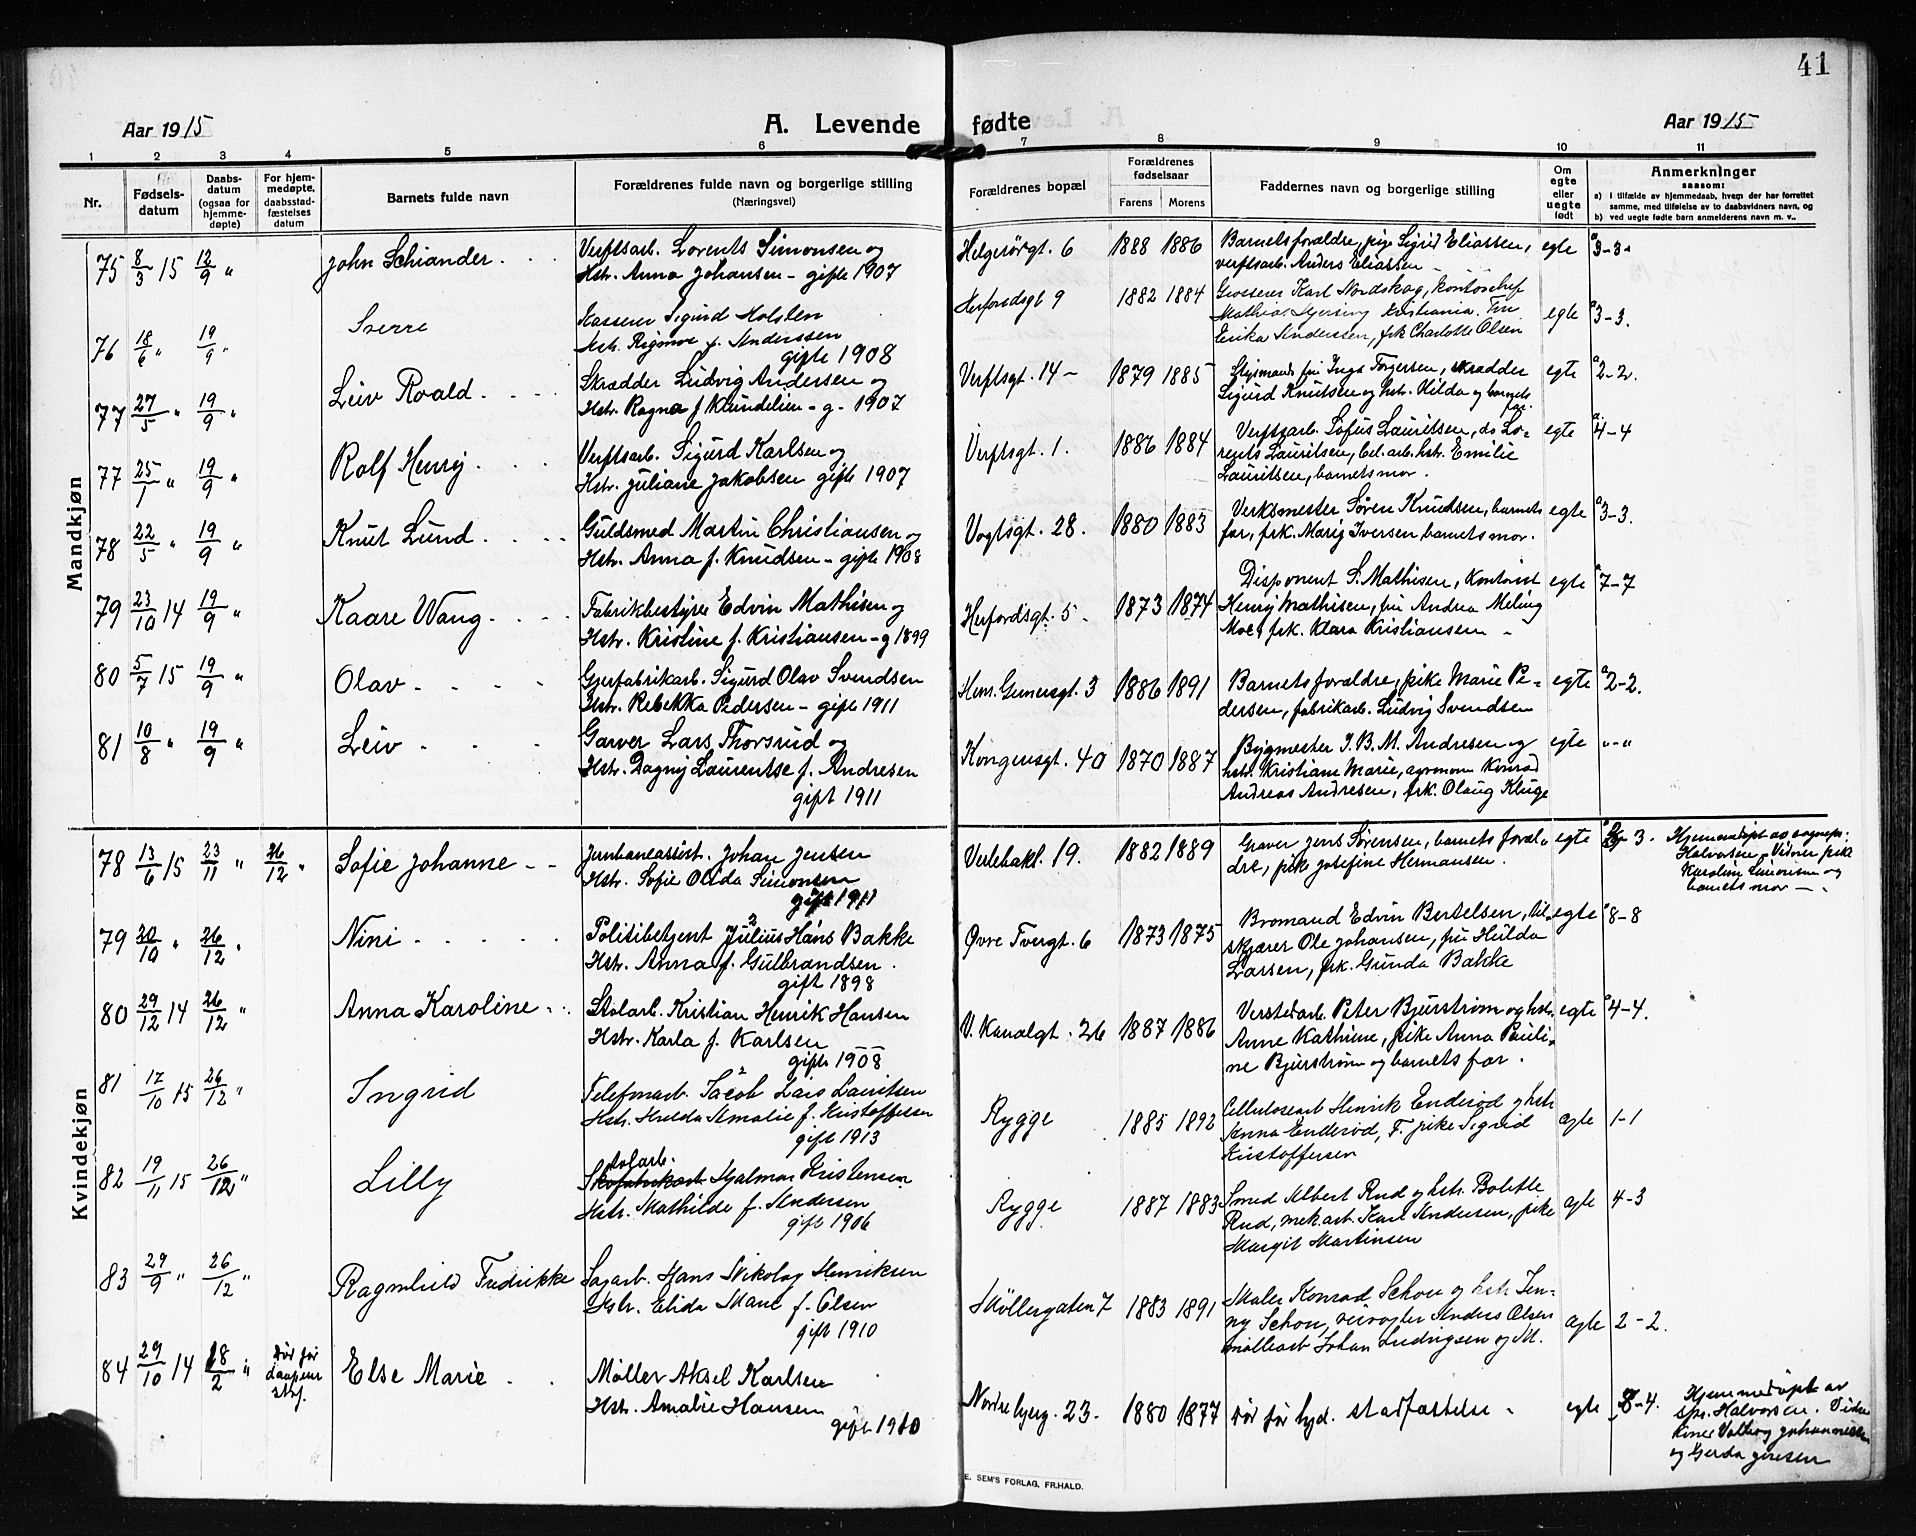 41
Aar 1915
A. Levende fødte
Aar 1915
1 2 3 4 5 6 7 8 9 10 11
Nr.
Fødsels-
datum
Daabs-
datum
(ogsaa for
hjemme-
døpte)
For hjem-
medøpte,
daabsstad-
fæstelses
datum
Barnets fulde navn
Forældrenes fulde navn og borgerlige stilling
(Næringsvei)
Forældrenes bopæl
Forældrenes
fødselsaar
Farens Morens
Faddernes navn og borgerlige stilling
Om
egte
eller
uegte
født
Anmerkninger
saasom:
a) i tilfælde av hjemmedaab, hvem der har forrettet
samme, med tilføielse av to daabsvidners navn, og
b) ved uegte fødte barn anmelderens navn m. v..
Mandkjøn
75 8/3 15 12/9 " John Schiander
Verftsarb. Lorents Simonsen og
Hstr. Anna Johansen - gifte 1907
Helgerörgt. 6 1888 1886
Barnets forældre, pige Sigrid Eliassen,
verftsarb. Anders Eliassen
egte 3-3
76 18/6 " 19/9 " Sverre
Kasserer Sigurd Holsten
Hstr. f. Anderssen
gifte 1908
Herfordsgt 9 1882 1884
Grosserer Karl Nordskog, kontorchef
Mathias Kristiania. Fru
Erika Andersen, frk Charlotte Olsen
egte 3-3.
77 27/5 " 19/9 " Leiv Roald
Skrædder Ludvig Andersen og
Hstr. Ragna f. - g. 1907
Verftsgt. 14 - 1879 1885
Styrmand fru Inga Torgersen, skrædder
Sigurd Knutsen og hstr. Hilda og barnets
far.
egte 2-2.
77 25/1 " 19/9 " Rolf Henry
Verftsarb. Sigurd Karlsen og
Hstr. Juliane Jakobsen gifte 1907
Verftsgt. 1. 1886 1884
Verftsarb. Sofus Lauritsen, do Lo-
rents Lauritsen, hstr. Emilie
Lauritsen, barnets mor.
egte 4-4
78 22/5 " 19/9 " Knut Lund
Guldsmed Martin Christiansen og
Hstr. Anna f. Knudsen - gifte 1908
Vogtsgt. 28. 1880 1883
Verksmester Søren Knudsen, barnets
far, frk. Marij Iversen barnets mor.
egte 3-3.
79 23/10 14 19/9 " Kaare Wang
Fabrikbestyrer Edvin Mathisen og
Hstr. Kristine f. Kristiansen - g 1899
Herfordsgt. 5 1873 1874
Disponent S. Mathisen, kontorist
Henry Mathisen, fru Andrea Meling
Moe, frk. Klara Kristiansen
egte 7-7
80 5/7 15 19/9 " Olav
Gjerfabrikarb. Sigurd Olav Svendsen
Hstr. Rebekka Pedersen - gifte 1911
Hem. Gernersgt. 3 1886 1891
Barnets forældre, pike Marie Pe-
dersen, fabrikarb. Ludvig Svendsen
egte 2-2.
81 10/8 " 19/9 " Leiv
Garver Lars Thorsrud og
Hstr. Dagny Laurentse f. Andresen
gift 1911
Kongensgt. 40 1870 1887
Bygmester J. B. M. Andresen og
hstr. Kristiane Marie, agronom Konrad
Andreas Andresen, frk. Olaug Kluge
egte "-"
Kvindekjøn
78 13/6 15 23/11 " 26/12 " Sofie Johanne
Jernbaneassist. Johan Jensen
Hstr. Sofie Olida Simonsen
gift 1911
Verlebakk. 19. 1882 1889
Graver Jens Sørensen, barnets foræl-
dre, pik Josefine Hermansen.
egte 3.
Hjemmedøpt av sognepr.
Halvorsen. Vidner pike
Karoline Simonsen og
barnets mor
79 20/10 " 26/12 " Nini
Politibetjent Julius Hans Bakke
Hstr. Anna f. Gulbrandsen.
gift 1898
Øvre Tvergt. 6 1873 1875
Bromand Edvin Bertelsen, til-
skjærer Ole Johansen, fru Hulda
Larsen, frk. Gunda Bakke
egte 8-8
80 29/12 14 26/12 " Anna Karoline
Stolarb. Kristian Henrik Hansen
Hstr. Karla f. Karlsen
gifte 1908
V. Kanalgt. 26 1887 1886
Verstedarb. Peter Bjurstrøm og hstr.
Anne Kathrine, pike Anna Pauli-
ne Bjurstrøm og barnets far.
egte 4-4.
81 17/10 15 26/12 " Ingrid
Telefonarb. Jacob Lars Lauritsen
Hstr. Hulda Amalie f. Kristoffersen
gift 1913
Rygge 1885 1892
Cellulosearb Henrik Enderød og hstr
Anna Enderød, F. pike Sigrid
Kristoffersen
egte 1-1
82 19/11 15 26/12 " Lilly
Stolarb. Hjalmar Kristensen
Hstr. Mathilde f. Andersen
gift 1906
Rygge 1887 1883
Smed Albert Rud og hstr. Bolette
Rud, mek.arb. Karl Andersen, pike
Margit Martinsen
egte 4-3
83 29/9 " 26/12 " Ragnhild Fredrikke
Sagarb. Hans Nikolay Henriksen
Hstr. Elida Marie f. Olsen
gift 1910
Møllergaten 7 1883 1891
Maler Konrad Schou og hstr. Jen-
ny Schou, Anders Olsen
møllearb Johan Ludvigsen og M.
egte 2-2.
84 29/10 14 18/2 " Død før
daapens
stf. Else Marie
Møller Aksel Karlsen
Hstr. Amalie Hansen
gift 1910
Nordre byerg. 23. 1880 1877
Død før stadfæstelse
egte 8-4.
Hjemmedøpt av
spr. Halvorsen. Vidner
Valborg Johannesen
og Gerda Jensen
E. SEM'S FORLAG, FR.HALD.